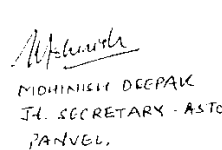 Mohinish
MOHINISH DEEPAK
Jt. SECRETARY - ASTC
PANVEL.